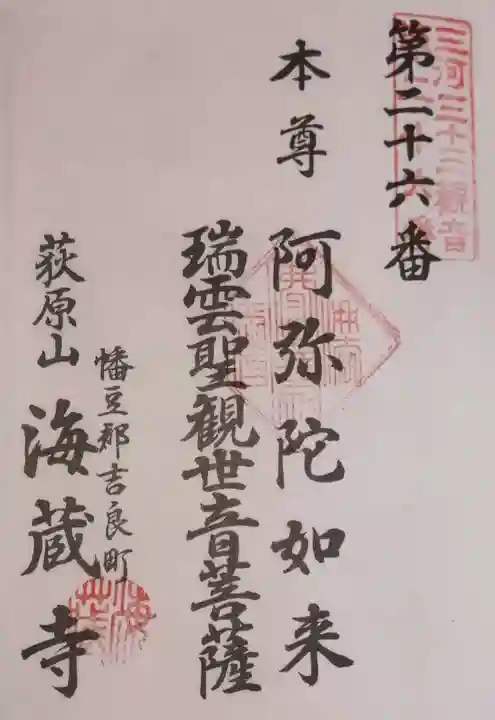 三河三十三観音
第二十六番
本尊 阿弥陀如来
瑞雲聖観世音菩薩
幡豆郡吉良町
荻原山 海蔵寺